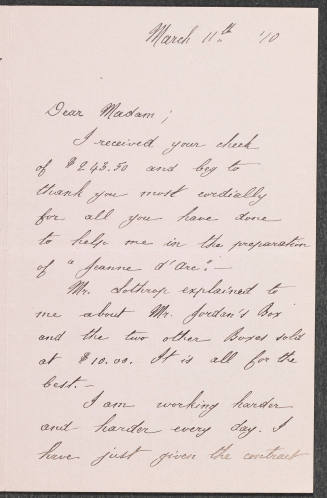 March 11th '10
Dear Madam;
I received your check
of $243.50 and beg to
thank you most cordially
for all you have done
to help me in the preparation
of "Jeanne d'Arc."—
Mr. Lothrop explained to
me about Mr. Jordan's Box
and the two other Boxes sold
at $10.00. It is all for the
best.—
I am working harder
and harder every day. I
have just given the contract